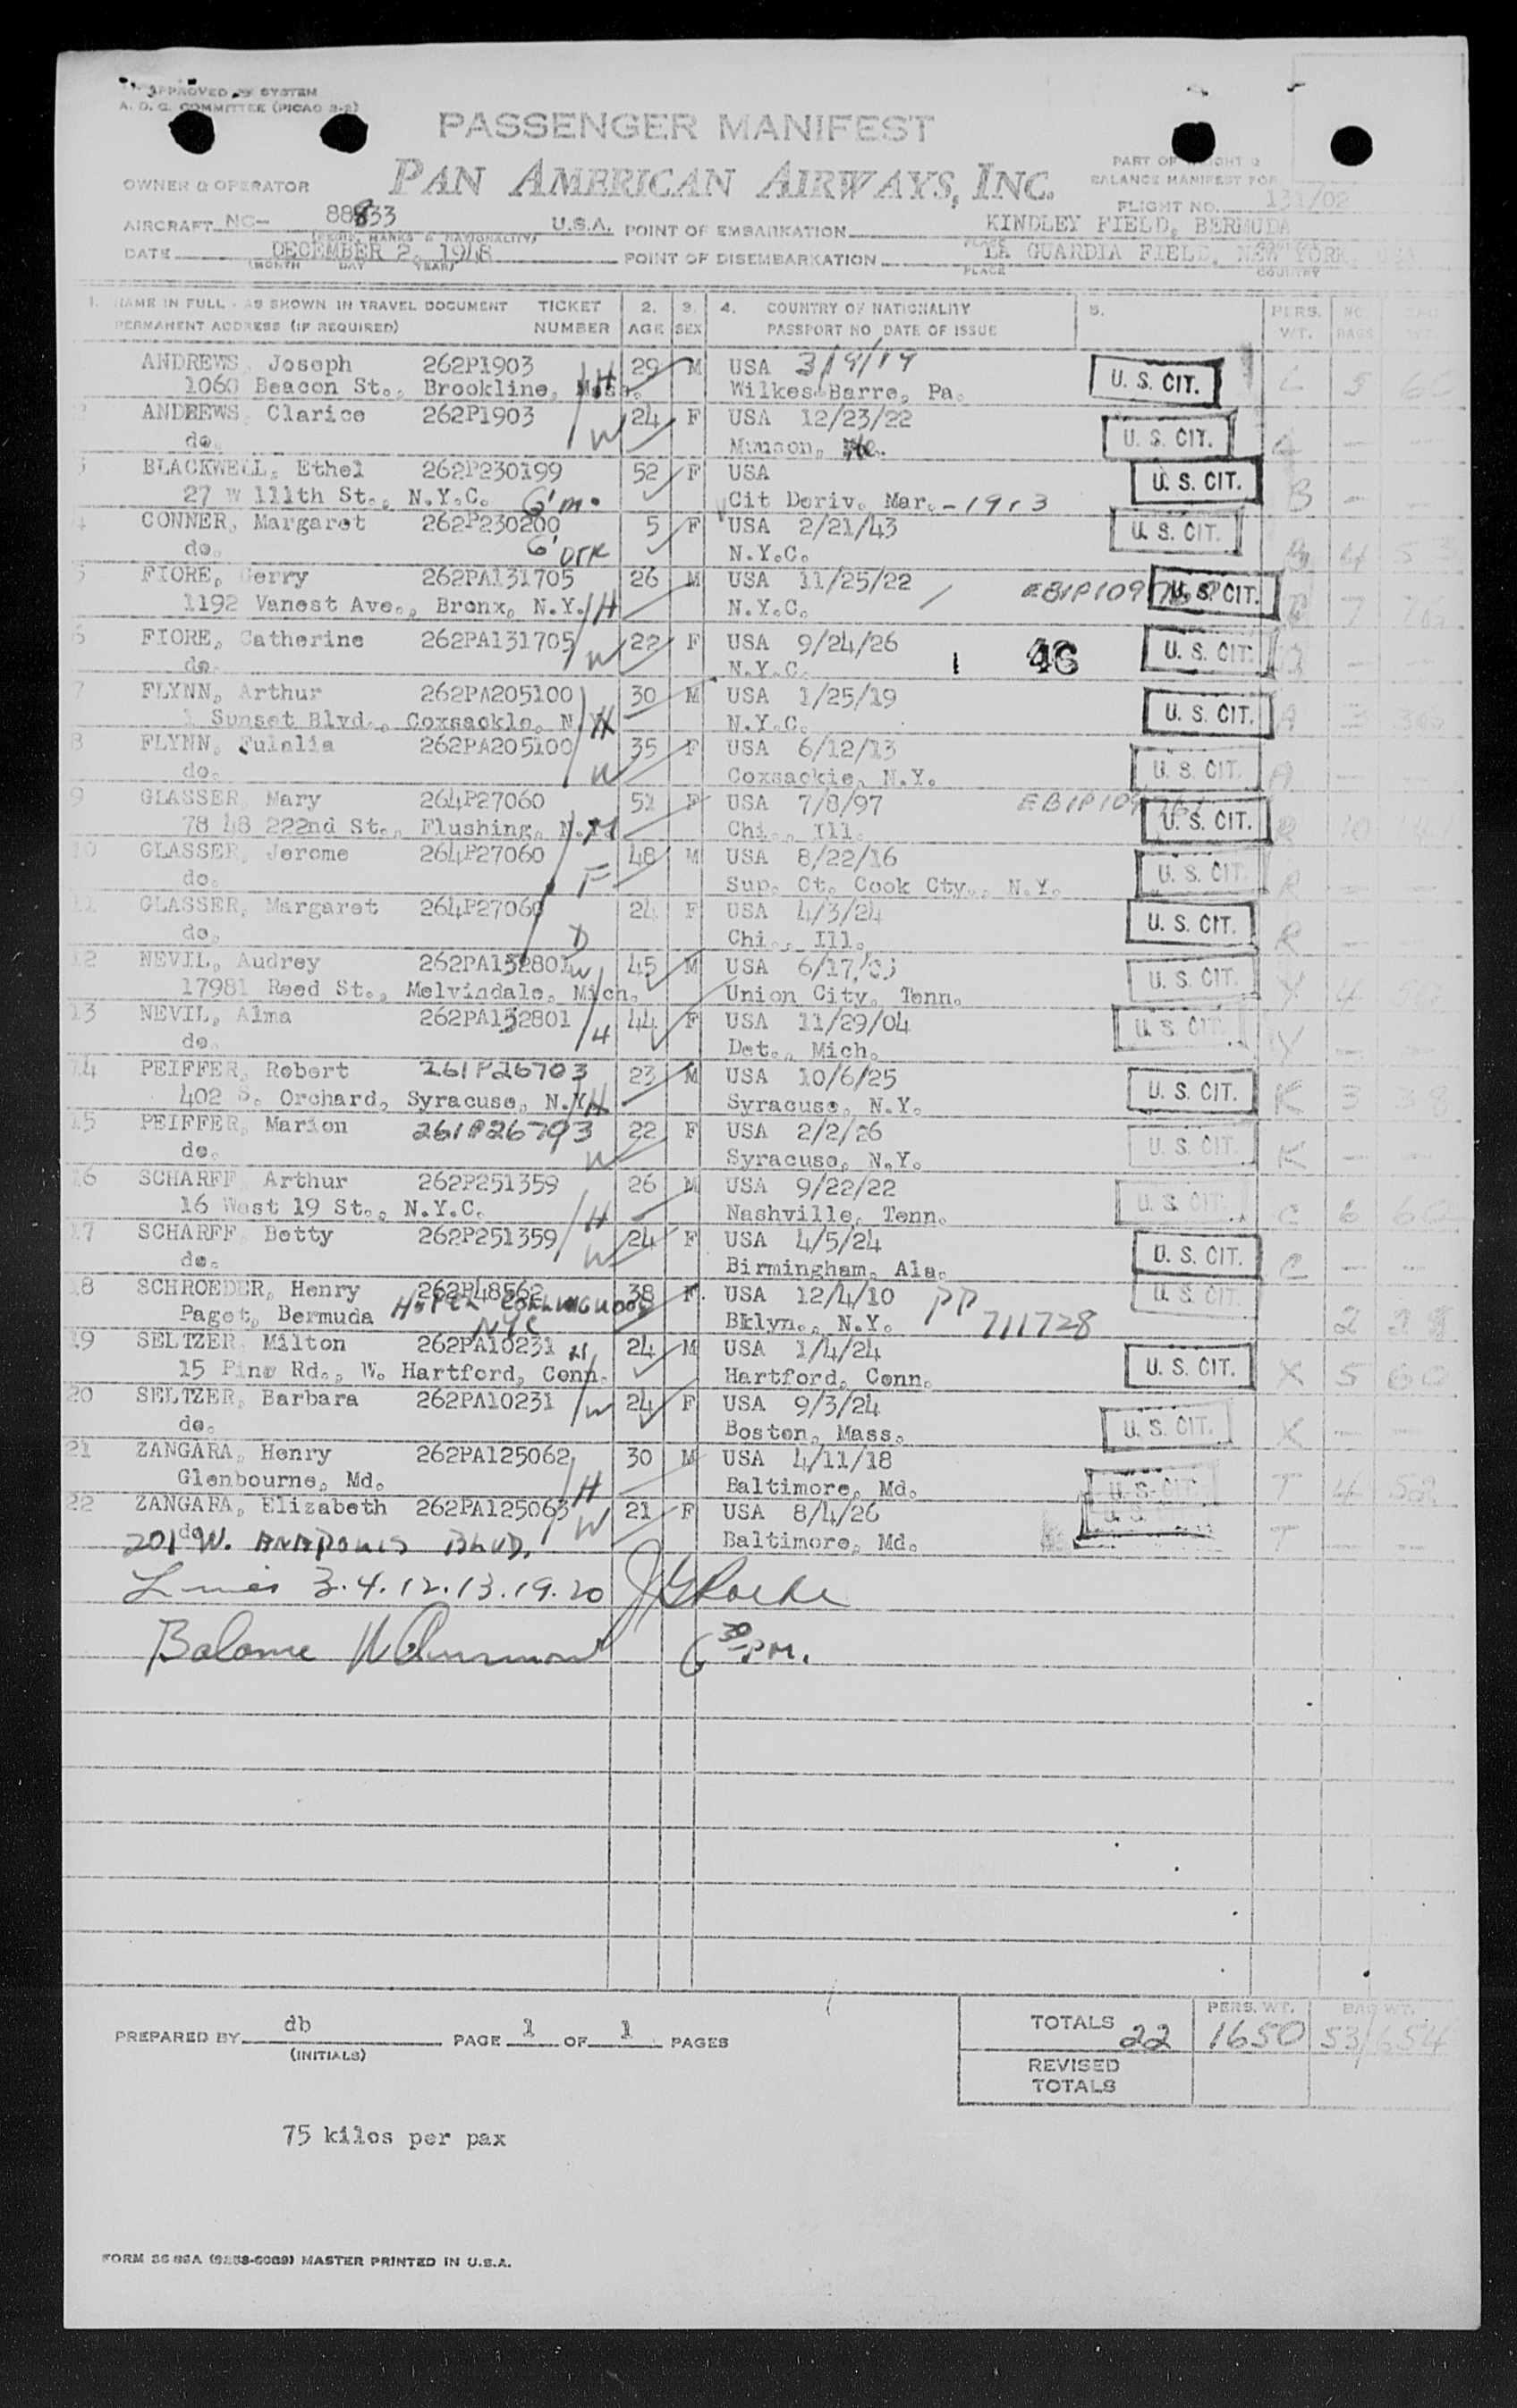 APPROVED BY SYSTEM
A. D. G. COMMITTEE (PICAO 2-2)
PASSENGER MANIFEST
PAN AMERICAN AIRWAYS, INC.
OWNER & OPERATOR
PART OF WEIGHT &
BALANCE MANIFEST FOR
FLIGHT NO. 131/02
AIRCRAFT NC- 88833 U.S.A. POINT OF EMBARKATION KINDLEY FIELD, BERMUDA
(REGIS. MARKS & NATIONALITY) PLACE COUNTRY
DATE DECEMBER 2, 1948 POINT OF DISEMBARKATION LA GUARDIA FIELD, NEW YORK, USA
(MONTH DAY YEAR) PLACE COUNTRY
1. NAME IN FULL - AS SHOWN IN TRAVEL DOCUMENT TICKET 2. 3. 4. COUNTRY OF NATIONALITY 5. PERS. NO. BAG
PERMANENT ADDRESS (IF REQUIRED) NUMBER AGE SEX PASSPORT NO DATE OF ISSUE WT. BAGS WT.
ANDREWS, Joseph 262P1903 29 M USA 3/9/19 U. S. CIT. L 5 60
1060 Beacon St., Brookline, Mass. H Wilkes Barre, Pa.
ANDREWS, Clarice 262P1903 24 F USA 12/23/22 U. S. CIT. — —
do. W Munson,
3 BLACKWELL, Ethel 262P230199 52 F USA U. S. CIT. B — —
27 W 111th St., N.Y.C. G'm. Cit Deriv. Mar. - 1913
4 CONNER, Margaret 262P230200 5 F USA 2/21/43 U. S. CIT. B 4 53
do. G'DTR N.Y.C.
5 FIORE, Gerry 262PA131705 26 M USA 11/25/22 U. S. CIT. 7
1192 Vanest Ave., Bronx, N.Y. H N.Y.C.
6 FIORE, Catherine 262PA131705 22 F USA 9/24/26 1 46 U. S. CIT. — —
do. W N.Y.C.
7 FLYNN, Arthur 262PA205100 30 M USA 1/25/19 U. S. CIT. A 3
1 Sunset Blvd., Coxsackie, N.Y. H N.Y.C.
8 FLYNN, Eulalia 262PA205100 35 F USA 6/12/13 U. S. CIT. A — —
do. W Coxsackie, N.Y.
9 GLASSER, Mary 264P27060 51 F USA 7/8/97 U. S. CIT. R 10
78 48 222nd St., Flushing, N.Y. M Chi., Ill.
10 GLASSER, Jerome 264P27060 48 M USA 8/22/16 U. S. CIT. R — —
do. F Sup. Ct. Cook Cty., N.Y.
11 GLASSER, Margaret 264P27060 24 F USA 4/3/24 U. S. CIT. R — —
do. D Chi., Ill.
12 NEVIL, Audrey 262PA132801 W 45 M USA 6/17/03 U. S. CIT. Y 4
17981 Reed St., Melvindale, Mich. Union City, Tenn.
13 NEVIL, Alma 262PA132801 H 44 F USA 11/29/04 U. S. CIT. Y — —
do. Det., Mich.
14 PEIFFER, Robert 261P26703 23 M USA 10/6/25 U. S. CIT. K 3 38
402 S. Orchard, Syracuse, N.Y. H Syracuse, N.Y.
15 PEIFFER, Marion 261P26703 22 F USA 2/2/26 U. S. CIT. K — —
do. W Syracuse, N.Y.
16 SCHARFF, Arthur 262P251359 26 M USA 9/22/22 U. S. CIT. C 6 60
16 West 19 St., N.Y.C. H Nashville, Tenn.
17 SCHARFF, Betty 262P251359 24 F USA 4/5/24 U. S. CIT. C — —
do. W Birmingham, Ala.
18 SCHROEDER, Henry 262P48562 38 F. USA 12/4/10 PP U. S. CIT.
Paget, Bermuda HOTEL COLLINGWOOD NYC Bklyn., N.Y. 711728 2
19 SELTZER, Milton 262PA10231 H 24 M USA 1/4/24 U. S. CIT. X 5 60
15 Pine Rd., W. Hartford, Conn. Hartford, Conn.
20 SELTZER, Barbara 262PA10231 W 24 F USA 9/3/24 U. S. CIT. X — —
do. Boston, Mass.
21 ZANGARA, Henry 262PA125062 30 M USA 4/11/18 U. S. CIT. T 4 52
Glenbourne, Md. H Baltimore, Md.
22 ZANGARA, Elizabeth 262PA125063 W 21 F USA 8/4/26 U. S. CIT. T — —
do 201 W. ANAPOLIS BLVD. Baltimore, Md.
Lines 3. 4. 12. 13. 19. 20 J G Roche
Balance 6 30 P.M.
PREPARED BY db PAGE 1 OF 1 PAGES
(INITIALS)
PERS. WT. BAG WT.
TOTALS 22 1650 53/654
REVISED
TOTALS
75 kilos per pax
FORM 36 89A (9258-6089) MASTER PRINTED IN U.S.A.